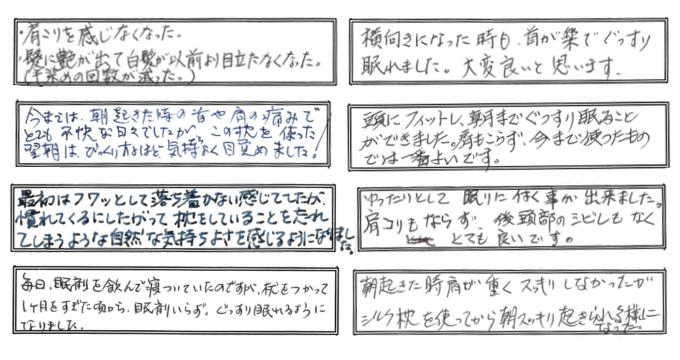 ・肩こりを感じなくなった。
・髪に艶が出て白髪が以前より目立たなくなった。
(毛染めの回数が減った。)
今までは、朝起きた時の首や肩の痛みで
とても不快な日々でしたが、この枕を使った
翌朝は、びっくりするほど気持ちよく目覚めました!
最初はフワッとして落ち着かない感じでしたが、
慣れてくるにしたがって枕をしていることを忘れ
てしまうような自然な気持ちよさを感じるようになりました。
毎日、眠剤を飲んで寝ついていたのですが、枕をつかって
1ヶ月をすぎた頃から、眠剤いらず、ぐっすり眠れるように
なりました。
横向きになった時も、首が楽でぐっすり
眠れました。大変良いと思います。
頭にフィットし、朝までぐっすり眠ること
ができました。肩もこらず、今まで使ったもの
では一番よいです。
ゆったりとして眠りに付く事が出来ました。
肩コリもならず、後頭部のシビレもなく
とても良いです。
朝起きた時肩が重くスッキリしなかったが
シルク枕を使ってから朝スッキリ起きられる様に
なった